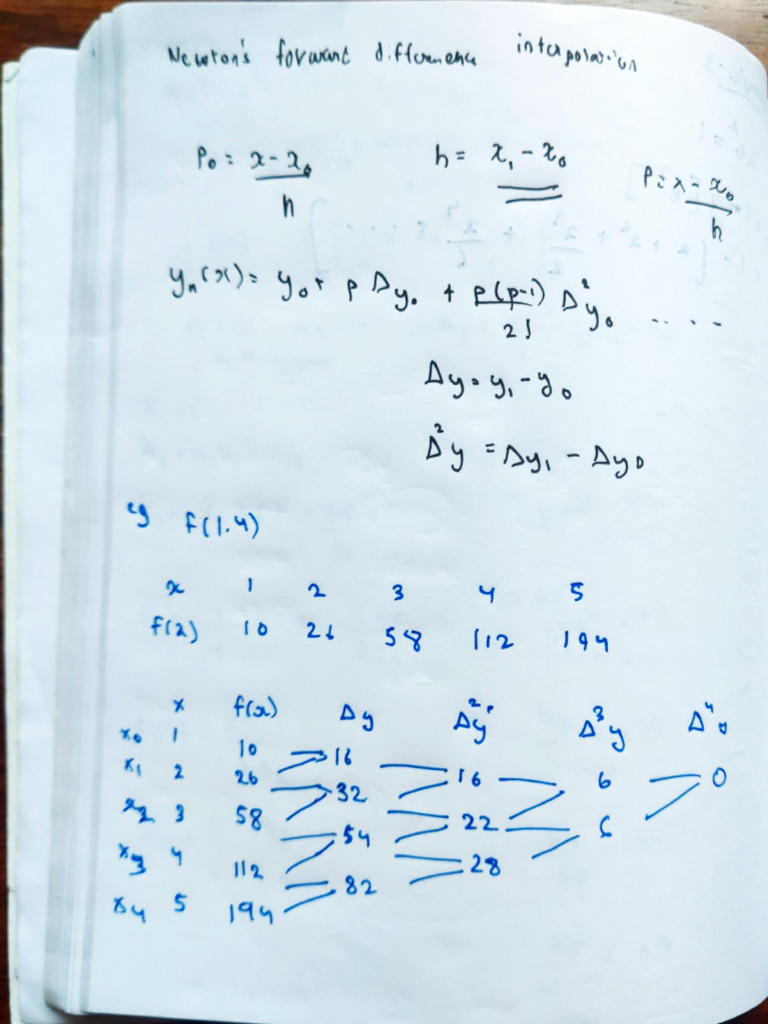 Newton's forward difference interpolation
P₀ = x - x₀ / h    h = x₁ - x₀    P = x - x₀ / h
yₙ(x) = y₀ + p Δy₀ + p(p-1)/2! Δ²y₀ ....
Δy = y₁ - y₀
Δ²y = Δy₁ - Δy₀
eg f(1.4)
x 1 2 3 4 5
f(x) 10 26 58 112 194
x f(x) Δy Δ²y Δ³y Δ⁴y
x₀ 1 10 16
x₁ 2 26 32 16 6 0
x₂ 3 58 54 22 6
x₃ 4 112 82 28
x₄ 5 194